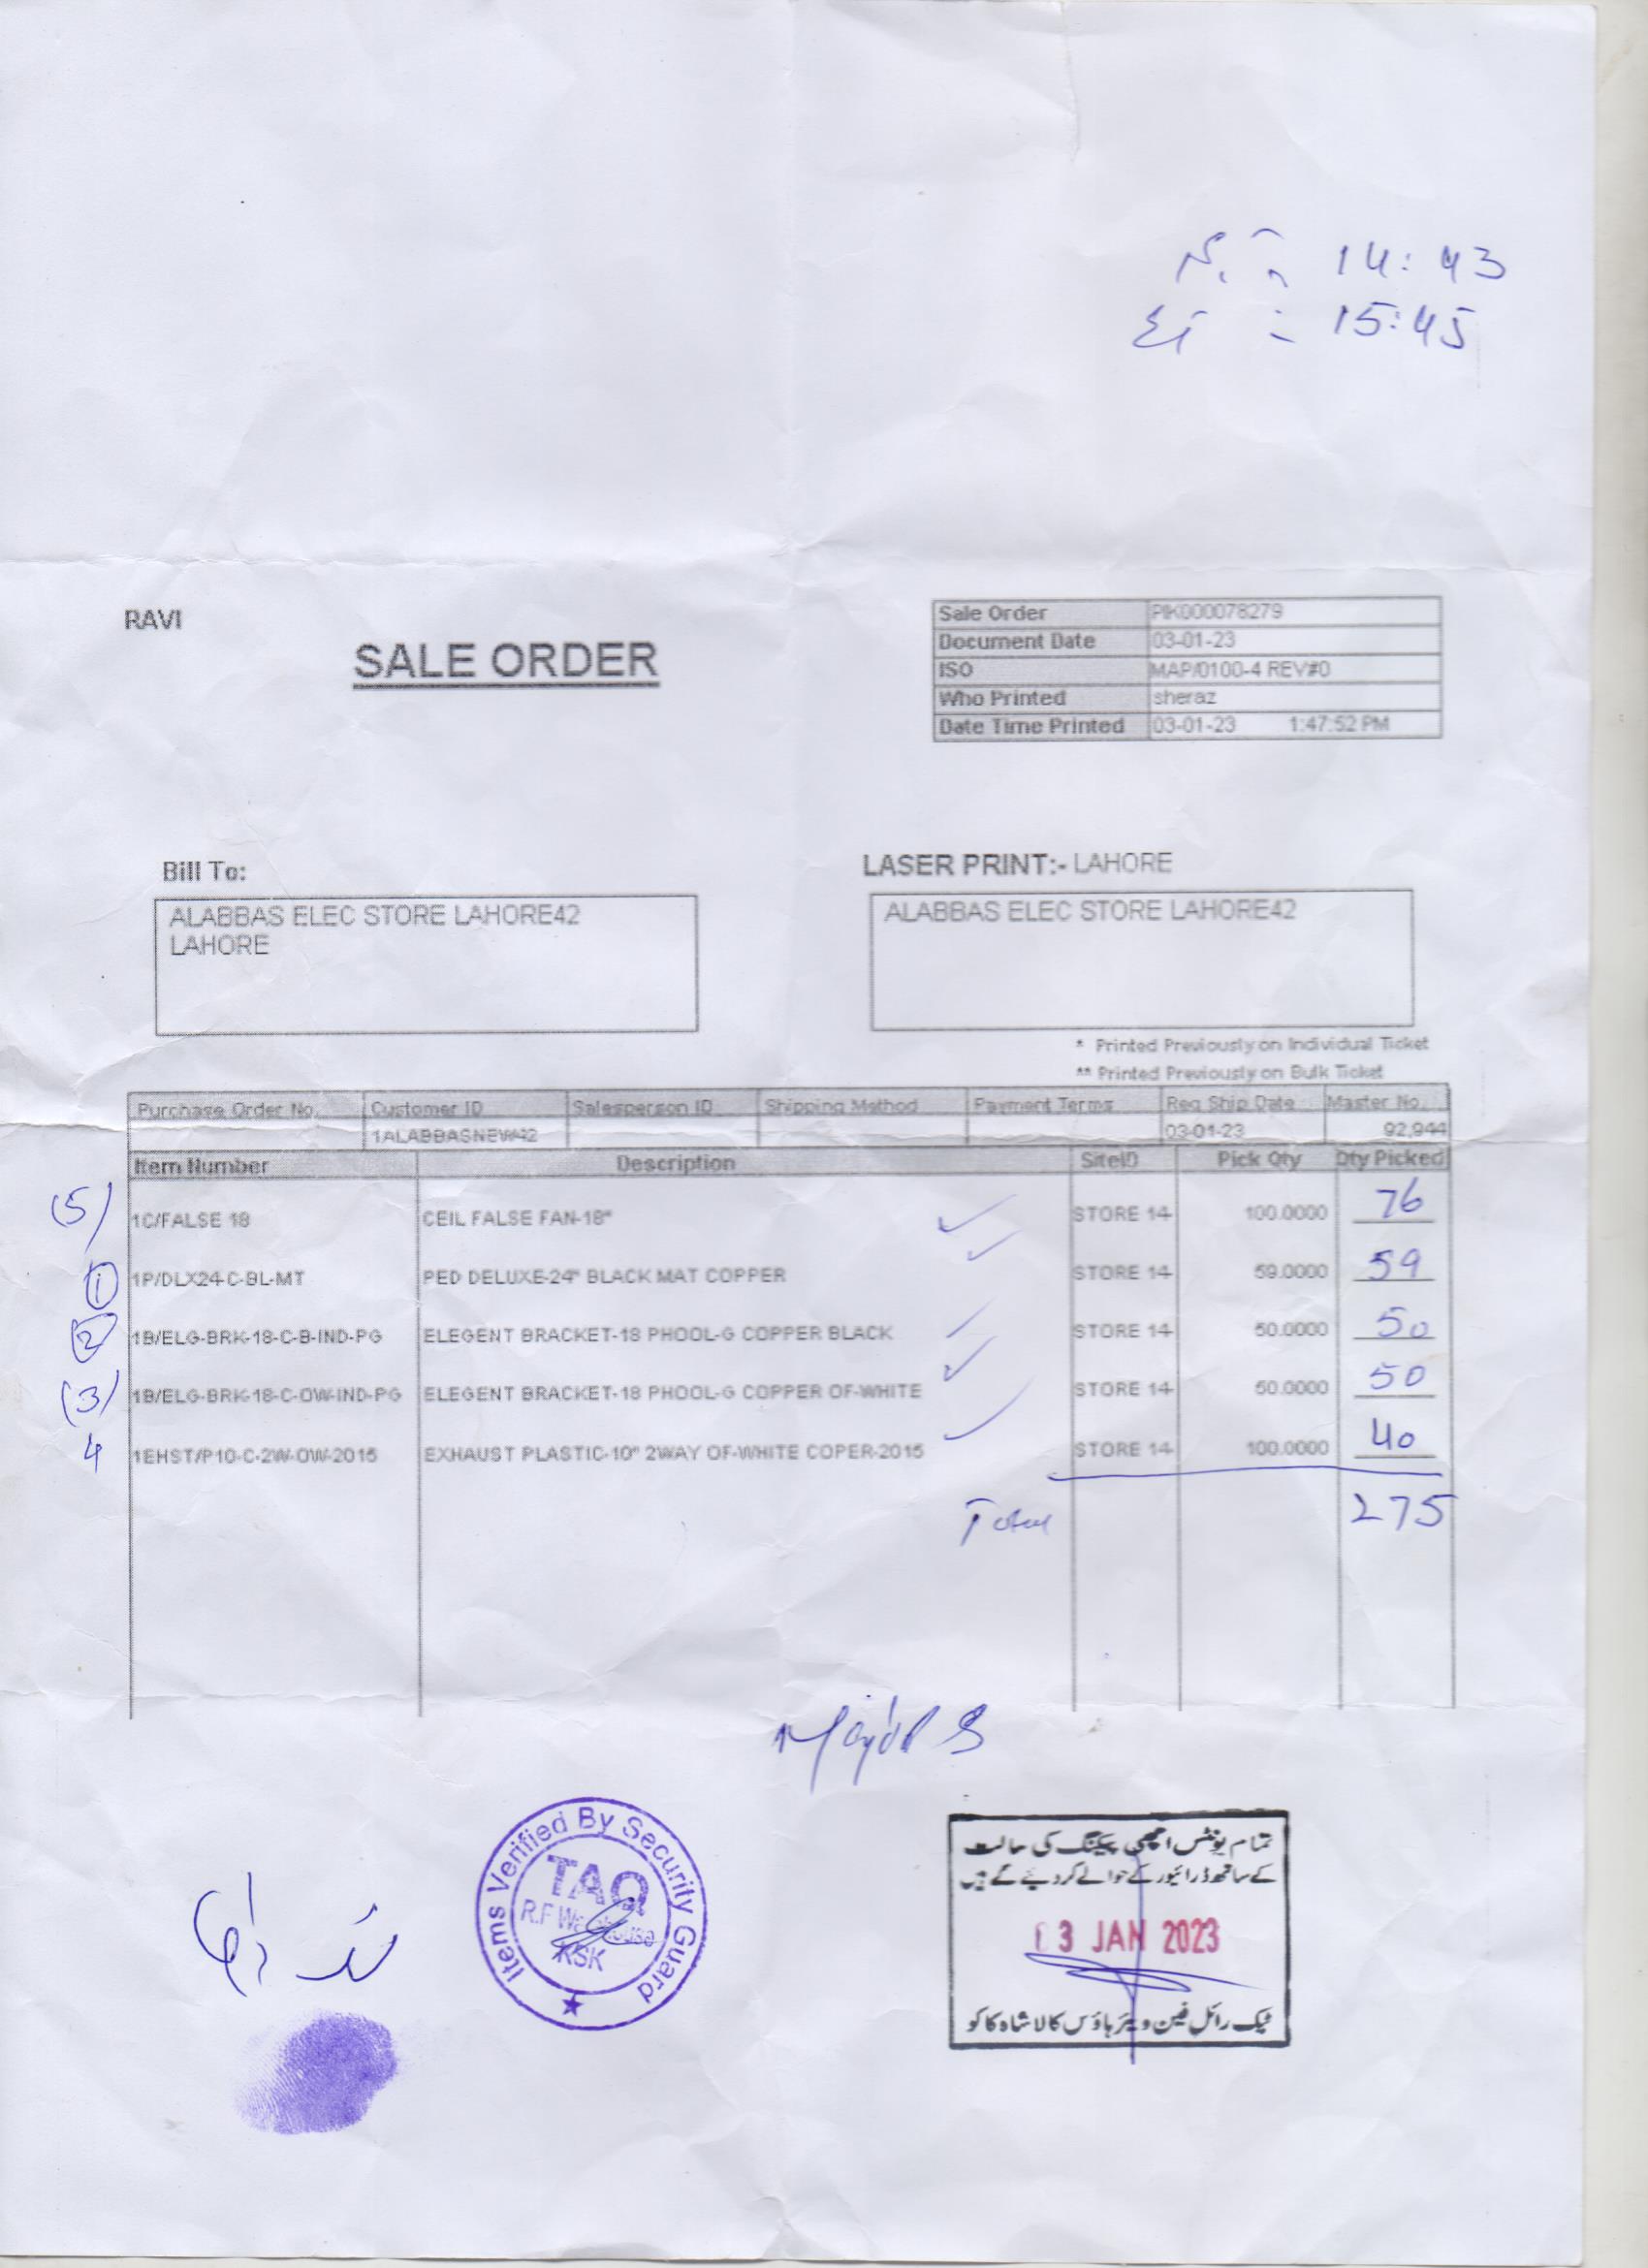 14:43
15:45
RAVI
SALE ORDER
Sale Order PIK000078279
Document Date 03-01-23
ISO MAP/0100-4 REV#0
Who Printed sheraz
Date Time Printed 03-01-23 1:47:52 PM
Bill To:
LASER PRINT:- LAHORE
ALABBAS ELEC STORE LAHORE42
LAHORE
ALABBAS ELEC STORE LAHORE42
* Printed Previously on Individual Ticket
** Printed Previously on Bulk Ticket
Purchase Order No. Customer ID Salesperson ID Shipping Method Payment Terms Req Ship Date Master No.
1ALABBASNEW42 03-01-23 92,944
Item Number Description SiteID Pick Qty Qty Picked
(5) 1C/FALSE 18 CEIL FALSE FAN-18" STORE 14 100.0000 76
1 1P/DLX24-C-BL-MT PED DELUXE-24" BLACK MAT COPPER STORE 14 59.0000 59
2 1B/ELG-BRK-18-C-B-IND-PG ELEGENT BRACKET-18 PHOOL-G COPPER BLACK STORE 14 50.0000 50
(3) 1B/ELG-BRK-18-C-OW-IND-PG ELEGENT BRACKET-18 PHOOL-G COPPER OF-WHITE STORE 14 50.0000 50
4 1EHST/P10-C-2W-OW-2015 EXHAUST PLASTIC-10" 2WAY OF-WHITE COPER-2015 STORE 14 100.0000 40
Total 275
Items Verified By Security Guard
TAQ
R.F Warehouse
KSK
تمام یونٹس اچھی پیکنگ کی حالت
کے ساتھ ڈرائیور کے حوالے کردیئے گے ہیں
03 JAN 2023
ٹیک رائل فین ویئر ہاؤس کالا شاہ کاکو